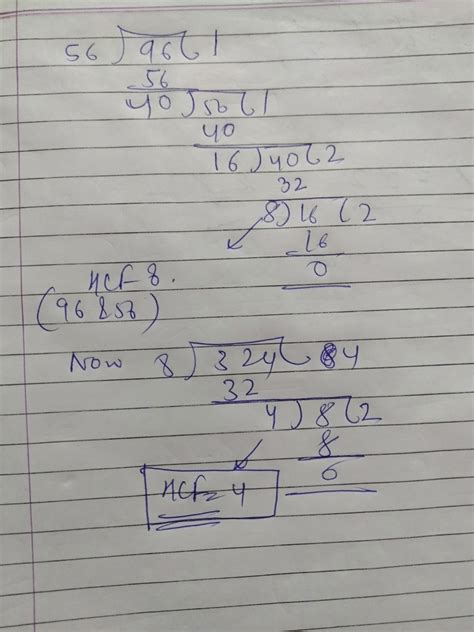 56 ) 96 ( 1
56
40 ) 56 ( 1
40
16 ) 40 ( 2
32
8 ) 16 ( 2
16
0
HCF 8.
(96 & 56)
Now 8 ) 324 ( 4
32
4 ) 8 ( 2
8
0
HCF = 4